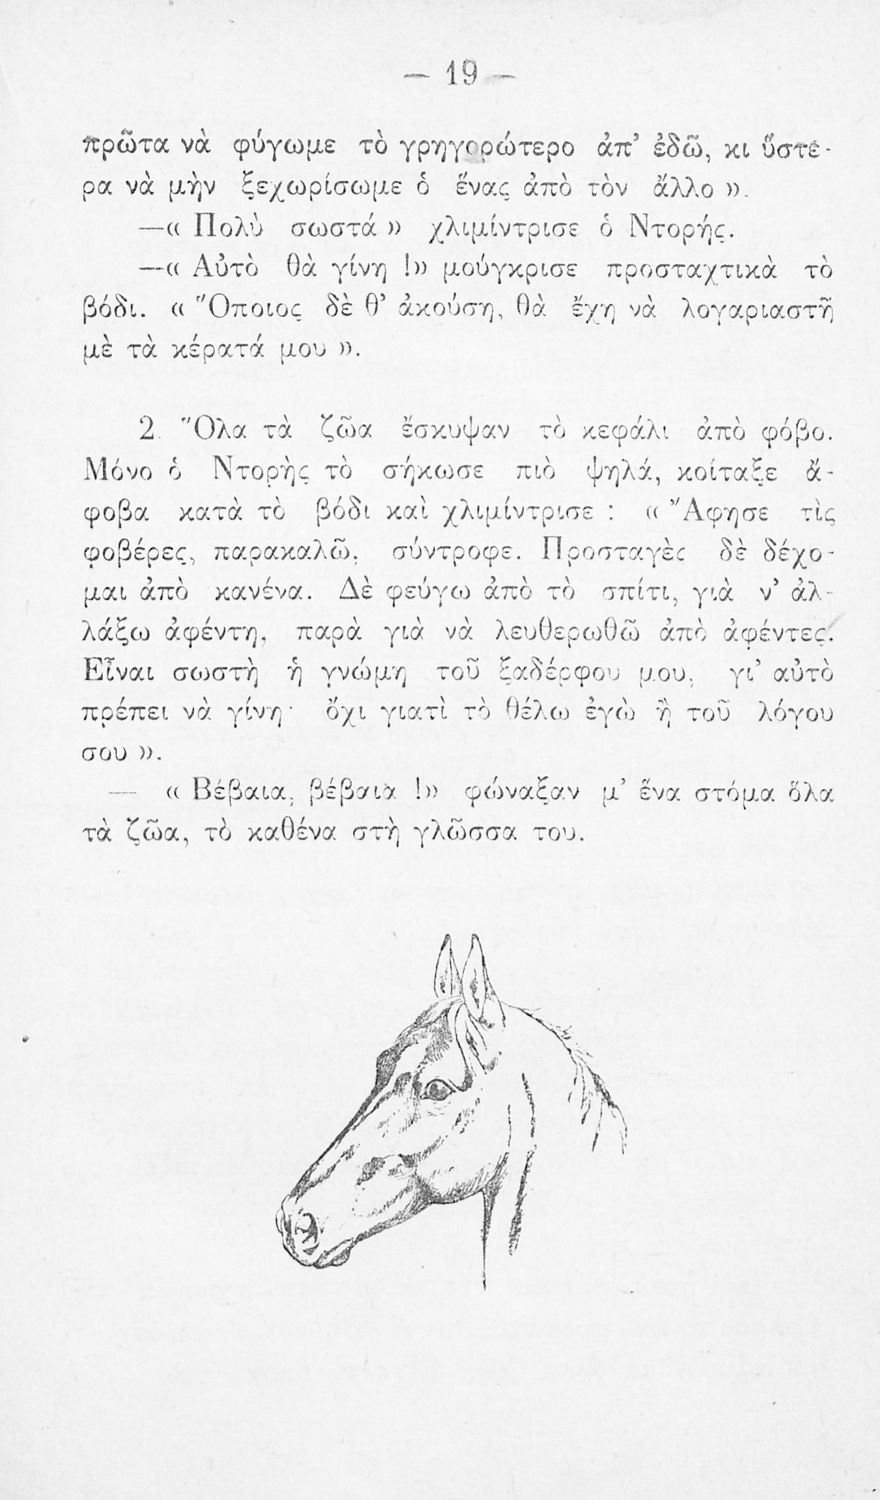 — 19 —
πρῶτα νὰ φύγωμε τὸ γρηγορώτερο ἀπ’ ἐδῶ, κι ὕστε-
ρα νὰ μὴν ξεχωρίσωμε ὁ ἕνας ἀπὸ τὸν ἄλλο ».
—« Πολὺ σωστά » χλιμίντρισε ὁ Ντορής.
—« Αὐτὸ θὰ γίνη !» μούγκρισε προσταχτικὰ τὸ
βόδι. « Ὅποιος δὲ θ’ ἀκούση, θὰ ἔχη νὰ λογαριαστῆ
μὲ τὰ κέρατά μου ».
2. Ὅλα τὰ ζῶα ἔσκυψαν τὸ κεφάλι ἀπὸ φόβο.
Μόνο ὁ Ντορὴς τὸ σήκωσε πιὸ ψηλά, κοίταξε ἄ-
φοβα κατὰ τὸ βόδι καὶ χλιμίντρισε : « Ἄφησε τὶς
φοβέρες, παρακαλῶ, σύντροφε. Προσταγὲς δὲ δέχο-
μαι ἀπὸ κανένα. Δὲ φεύγω ἀπὸ τὸ σπίτι, γιὰ ν’ ἀλ-
λάξω ἀφέντη, παρὰ γιὰ νὰ λευθερωθῶ ἀπὸ ἀφέντες.
Εἶναι σωστὴ ἡ γνώμη τοῦ ξαδέρφου μου, γι’ αὐτὸ
πρέπει νὰ γίνη· ὄχι γιατὶ τὸ θέλω ἐγὼ ἢ τοῦ λόγου
σου ».
— « Βέβαια, βέβαια !» φώναξαν μ’ ἕνα στόμα ὅλα
τὰ ζῶα, τὸ καθένα στὴ γλῶσσα του.